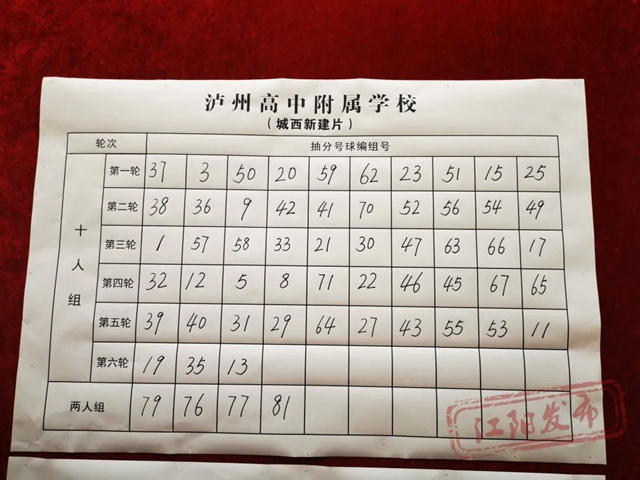 泸州高中附属学校
（城西新建片）
轮次 抽分号球编组号
十人组
第一轮 37 3 50 20 59 62 23 51 15 25
第二轮 38 36 9 42 41 70 52 56 54 49
第三轮 1 57 58 33 21 30 47 63 66 17
第四轮 32 12 5 8 71 22 46 45 67 65
第五轮 39 40 31 29 64 27 43 55 53 11
第六轮 19 35 13
两人组 79 76 77 81
江阳发布